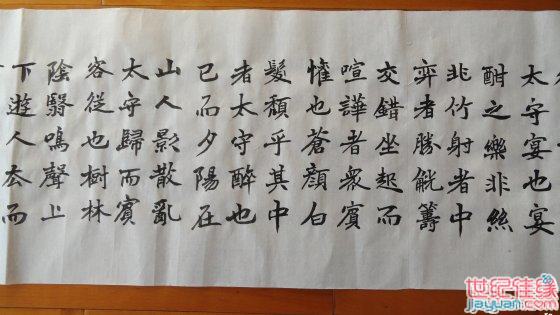 太守宴也宴
酣之樂非絲
非竹射者中
弈者勝觥籌
交錯坐起而
喧譁者衆賓
懽也蒼顏白
髮頹乎其中
者太守醉也
已而夕陽在
山人影散亂
太守歸而賓
客從也樹林
陰翳鳴聲上
下遊人去而
世纪佳缘
jiayuan.com